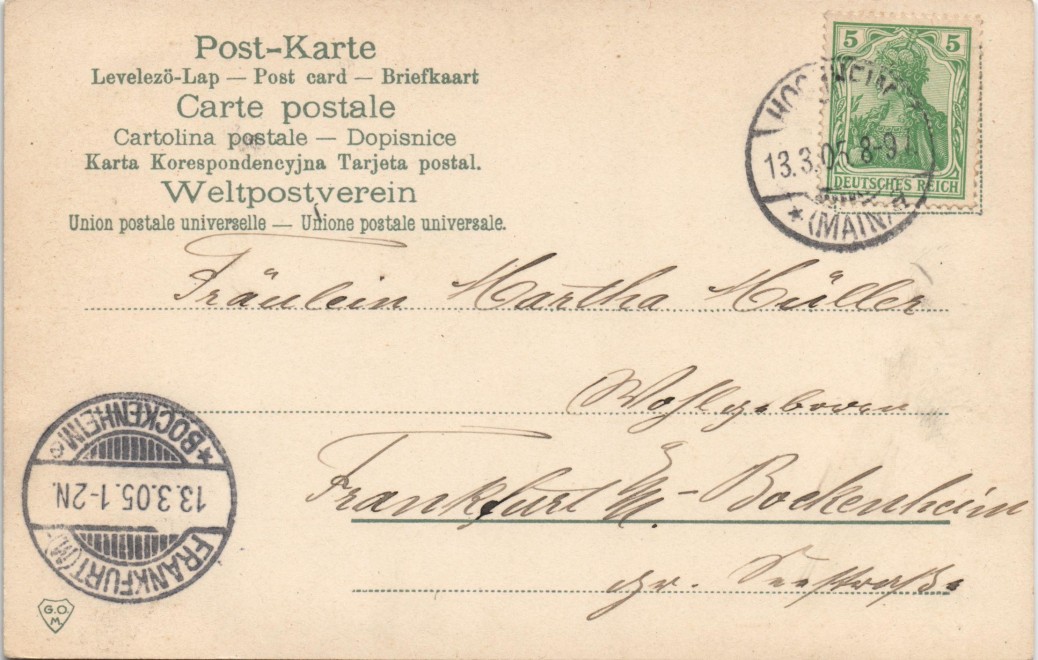 Post-Karte
Levelezö-Lap — Post card — Briefkaart
Carte postale
Cartolina postale — Dopisnice
Karta Korespondencyjna Tarjeta postal.
Weltpostverein
Union postale universelle — Unione postale universale.
5 5
DEUTSCHES REICH
13.3.05 8-9
a
* (MAIN)
Fräulein Martha Müller
Wohlgeboren
Frankfurt a/M.- Bockenheim
gr. Seestraße
*BOCKENHEIM
13.3.05.1-2N.
FRANKFURT (M.)
G.O.
M.